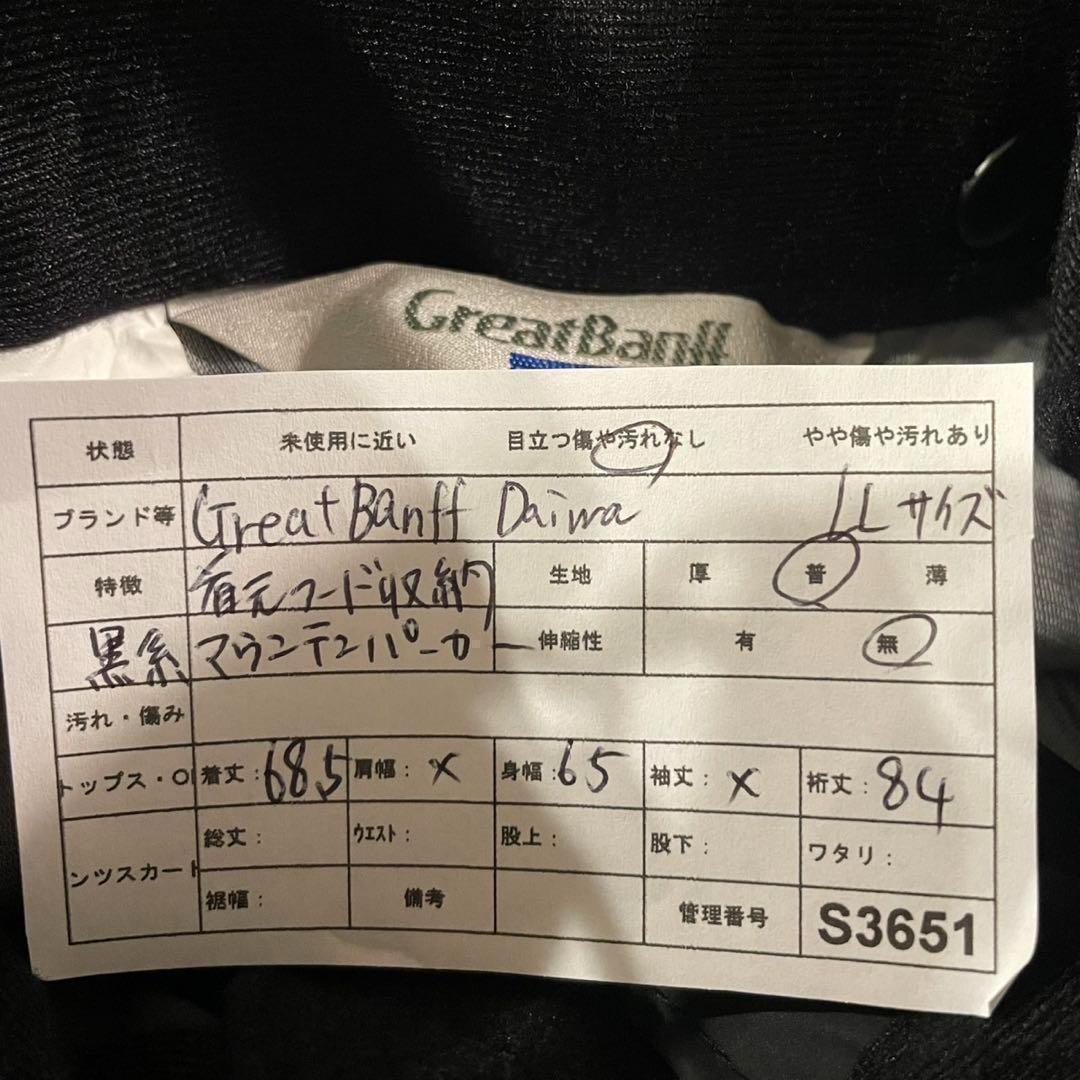 GreatBanff
状態 未使用に近い 目立つ傷や汚れなし やや傷や汚れあり
ブランド等 GreatBanff Daiwa LLサイズ
特徴 首元フード収納 生地 厚 普 薄
黒系 マウンテンパーカー 伸縮性 有 無
汚れ・傷み
トップス・O 着丈:68.5 肩幅: × 身幅:65 袖丈: × 裄丈:84
ンツスカート 総丈: ウエスト: 股上: 股下: ワタリ:
裾幅: 備考 管理番号 S3651